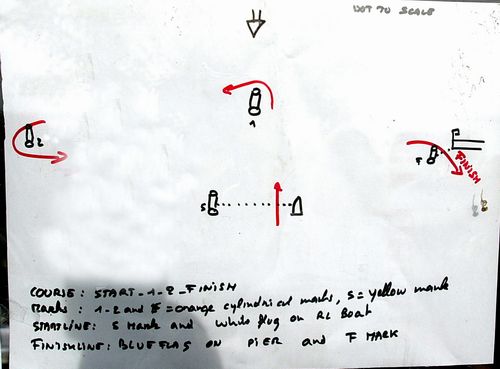 NOT TO SCALE
1
2
F
FINISH
S
COURSE: START-1-2-FINISH
MARKS: 1-2 and F = orange cylindrical marks, S = yellow mark
STARTLINE: S Mark and white flag on RC Boat
FINISHLINE: BLUE FLAG ON PIER and F MARK